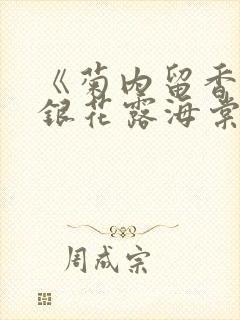 《菊内留香
銀花露海棠
周成宗